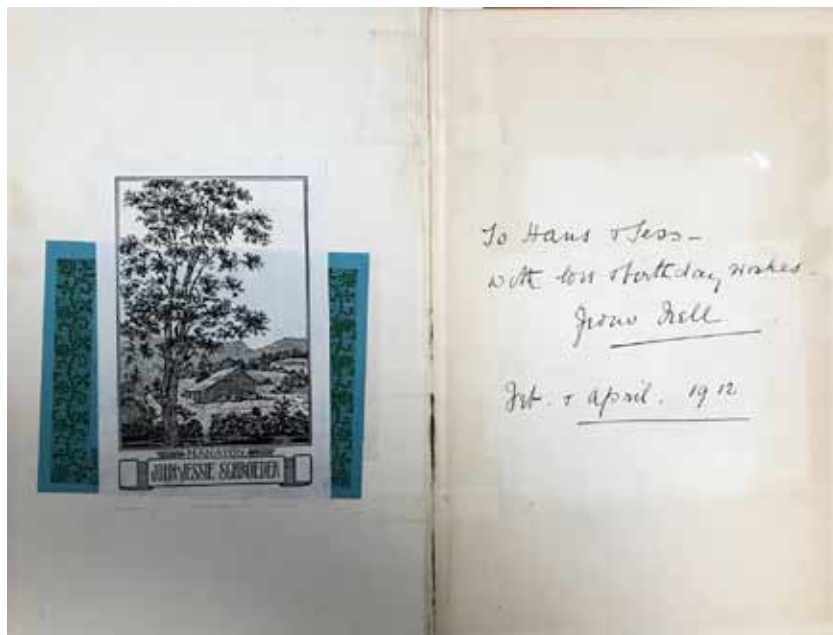 MANATON
JOHN & JESSIE SCHROEDER
To Hans & Jess –
with love & birthday wishes.
from Nell
Feb. & April. 1912